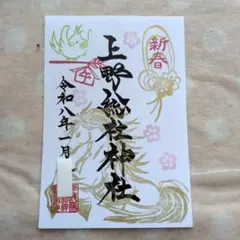 新春
上野総社神社
令和八年一月